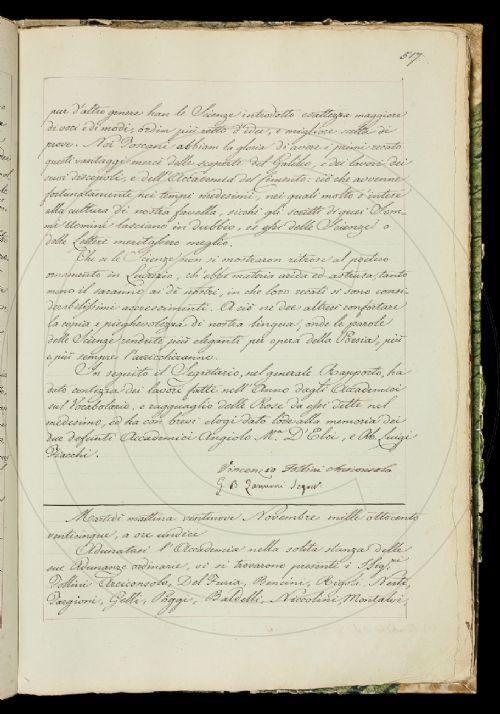 517.
pur d'altro genere han le Scienze introdotto esattezza maggiore
di voci e di modi, ordin più retto d'idee, e migliore scelta di
prose. Noi Toscani abbiam la gloria di avere i primi recato
questi vantaggi mercè delle scoperte del Galileo, e dei lavori dei
suoi discepoli, e dell'Accademia del Cimento: ciò che avvenne
fortunatamente nei tempi medesimi, nei quali molto s'intese
alla cultura di nostra favella, sicchè gli scritti di quei Som-
mi Uomini lasciano in dubbio, se essi delle Scienze o
delle Lettere meritassero meglio.
Che se le Scienze non si mostraron ritrose al poetico
ornamento in Lucrezio, ch'ebbe materia arida ed astrusa, tanto
meno il saranno ai dì nostri, in che loro recati si sono consi-
derabilissimi accrescimenti. A ciò ne dee altresì confortare
la copia e pieghevolezza di nostra lingua, onde le parole
delle Scienze rendute più eleganti per opera della Poesia, più
e più sempre l'arricchiranno.
In seguito il Segretario, nel generale Rapporto, ha
dato contezza dei lavori fatti nell'Anno dagli Accademici
sul Vocabolario, e ragguaglio delle Prose da essi dette nel
medesimo, ed ha con brevi elogi dato lode alla memoria dei
due defunti Accademici Angiolo M. D'Elci, e Ab. Luigi
Fiacchi.
Vincenzio Follini Arciconsolo
G. B. Zannoni Segret.
Martedì mattina ventinove Novembre mille ottocento
venticinque, a ore undice
Adunatasi l'Accademia nella solita stanza delle
sue Adunanze ordinarie, vi si trovarono presenti i SSig.ri
Follini Arciconsolo, Del Furia, Bencini, Rigoli, Nesti,
Targioni, Gelli, Poggi, Baldelli, Niccolini, Montalvi,